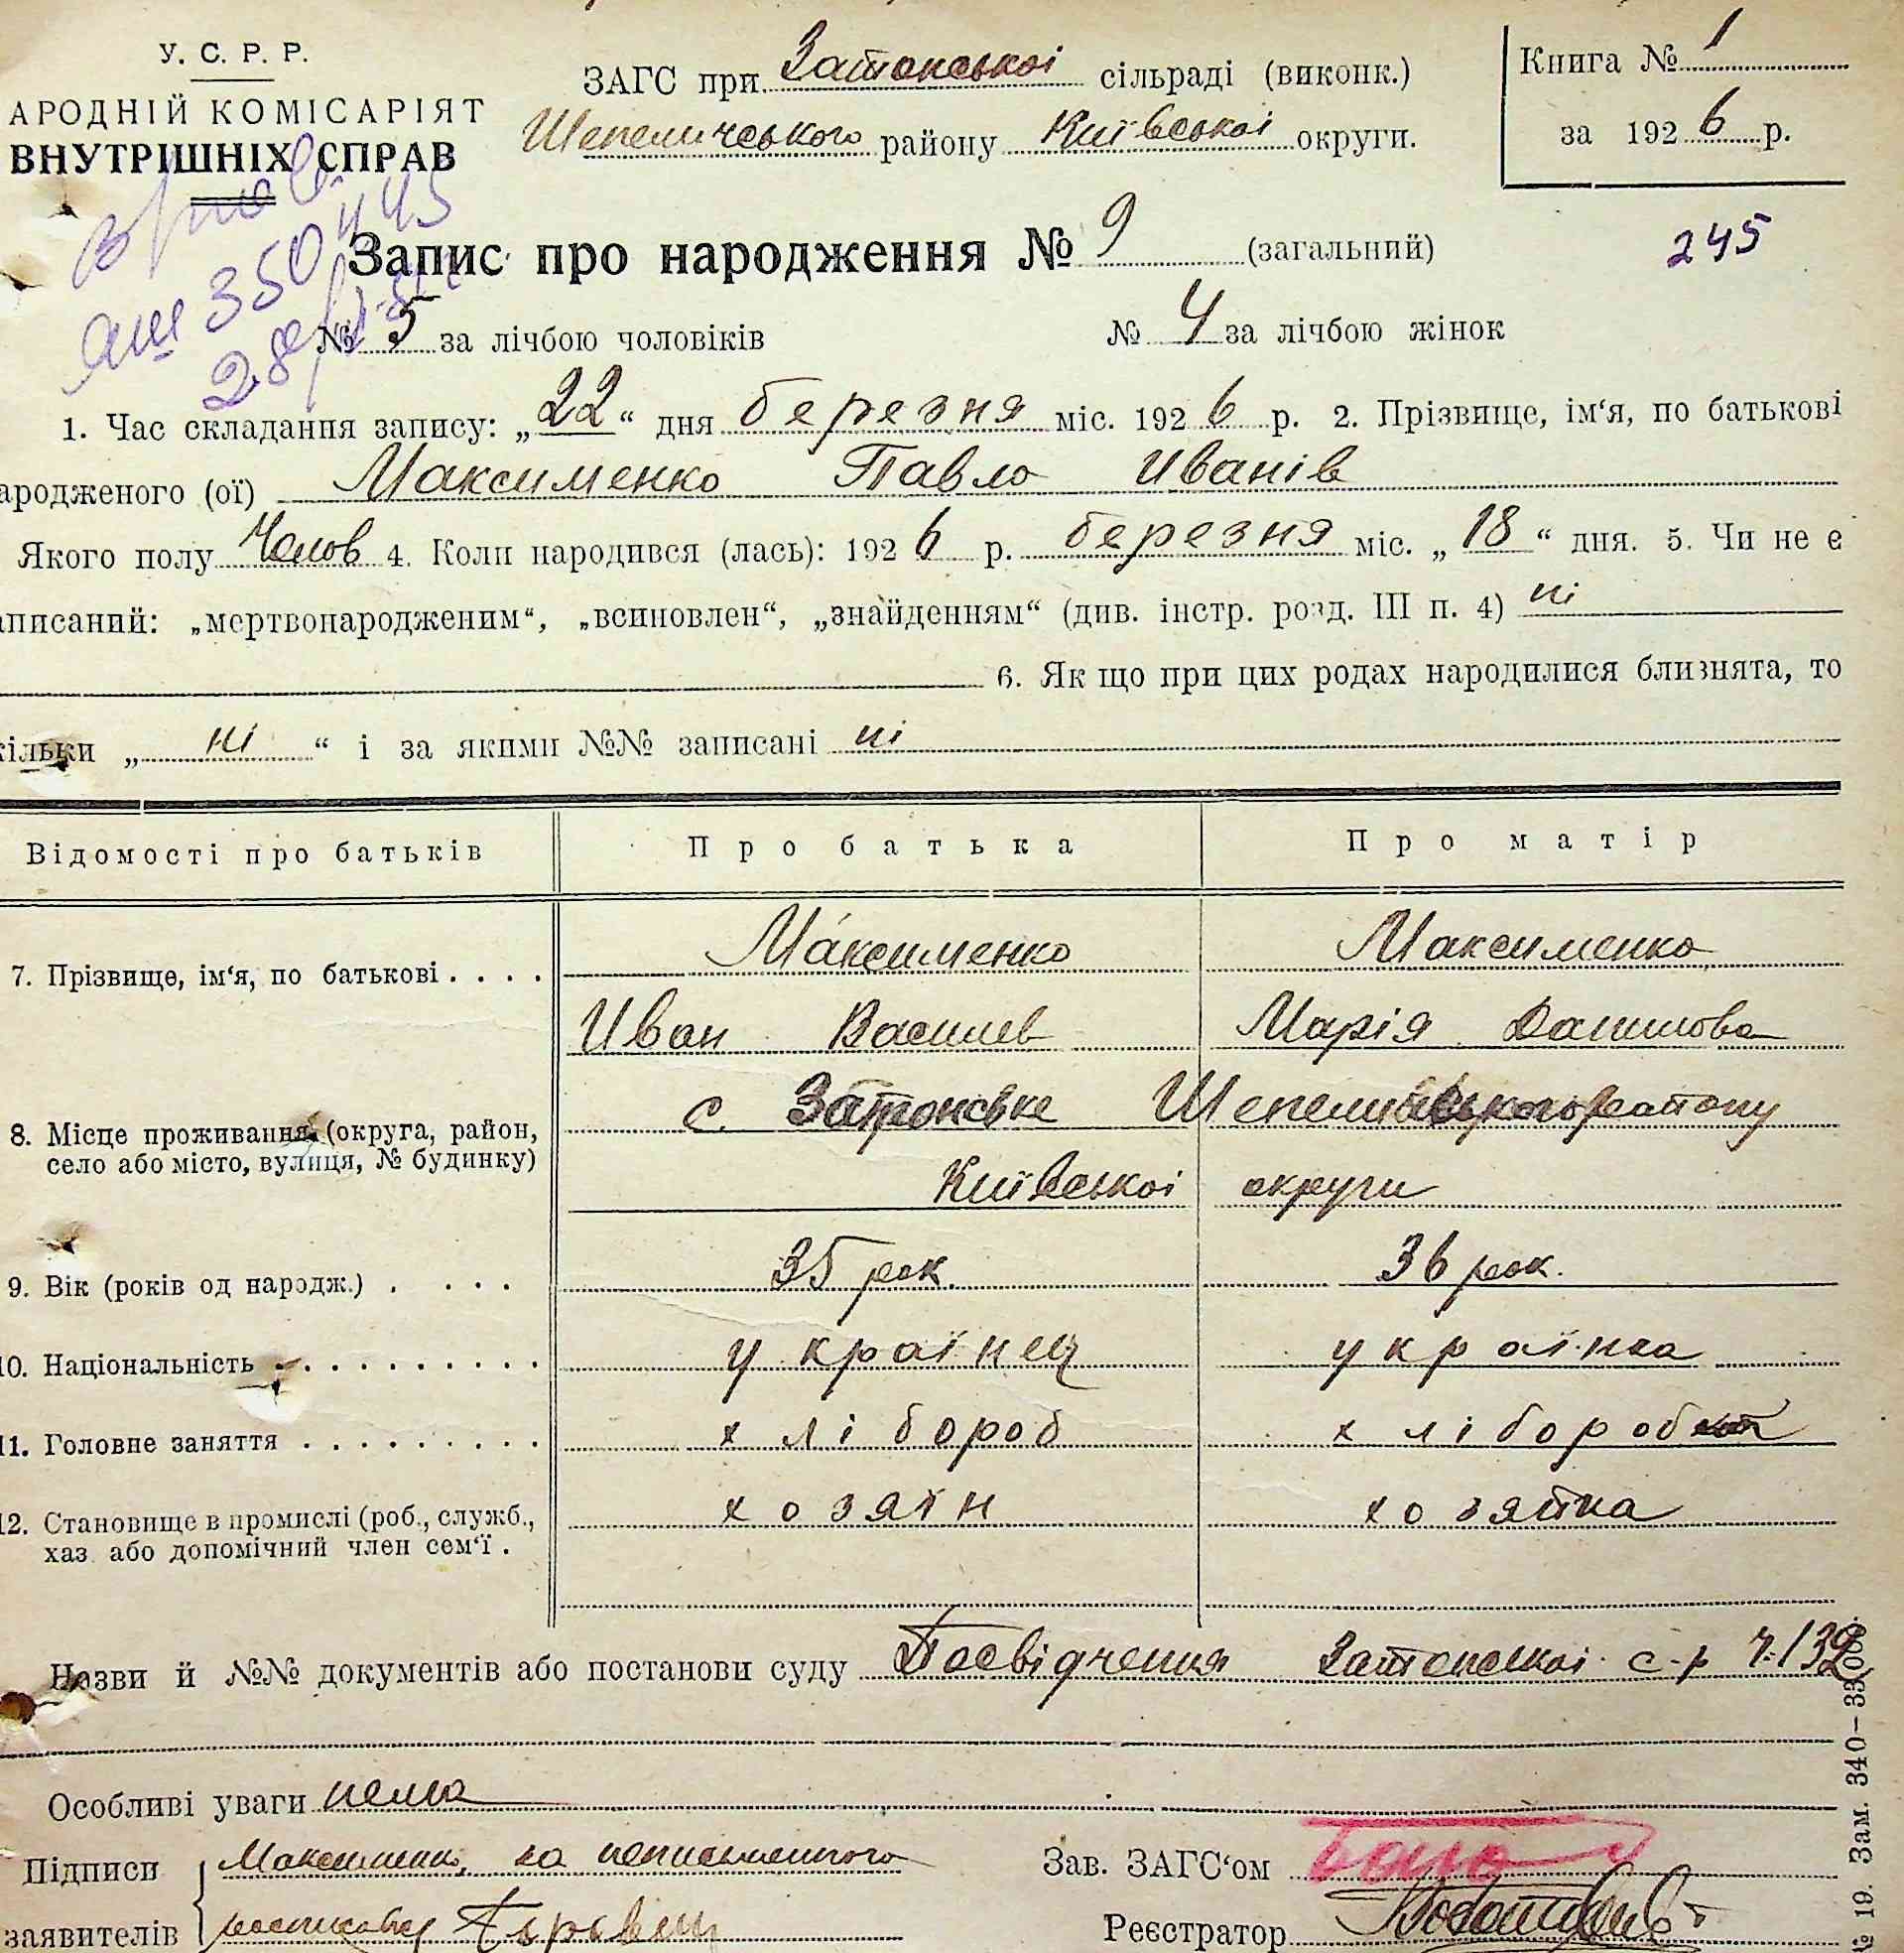 У. С. Р. Р.
АРОДНІЙ КОМІСАРІЯТ
ВНУТРІШНІХ СПРАВ
ЗАГС при Затонської сільраді (виконк.)
Шепелицького району Київської округи.
Книга № 1
за 1926 р.
350445
Запис про народження № 9 (загальний)
245
№ 5 за лічбою чоловіків № 4 за лічбою жінок
1. Час складання запису: „22“ дня березня міс. 1926 р. 2. Прізвище, ім‘я, по батькові
ародженого (ої) Максименко Павло Иванів
Якого полу Чолов 4. Коли народився (лась): 1926 р. березня міс. „18“ дня. 5. Чи не є
аписаний: „мертвонародженим“, „всиновлен“, „знайденням“ (див. інстр. розд. III п. 4) ні
6. Як що при цих родах народилися близнята, то
кільки „ні“ і за якими №№ записані ні
Відомості про батьків Про батька Про матір
7. Прізвище, ім‘я, по батькові . . . . Максименко Максименко
Иван Василев Марія Данилова
8. Місце проживання (округа, район, село або місто, вулиця, № будинку) с. Затонське Шепелицького району
Київської округи
9. Вік (років од народж.) . . . . 35 рок. 36 рок.
10. Національність . . . . . . . . . . українец українка
11. Головне заняття . . . . . . . . . хлібороб хлібороб
12. Становище в промислі (роб., служб., хаз або допомічний член сем‘ї . хозяїн хозяйка
Назви й №№ документів або постанови суду Посвідчення Затонської с-р ч. 132
Особливі уваги нема
Підписи Максименко, за неписьменного
заявителів
Зав. ЗАГС‘ом
Реєстратор
№ 19. Зам. 340–33000.